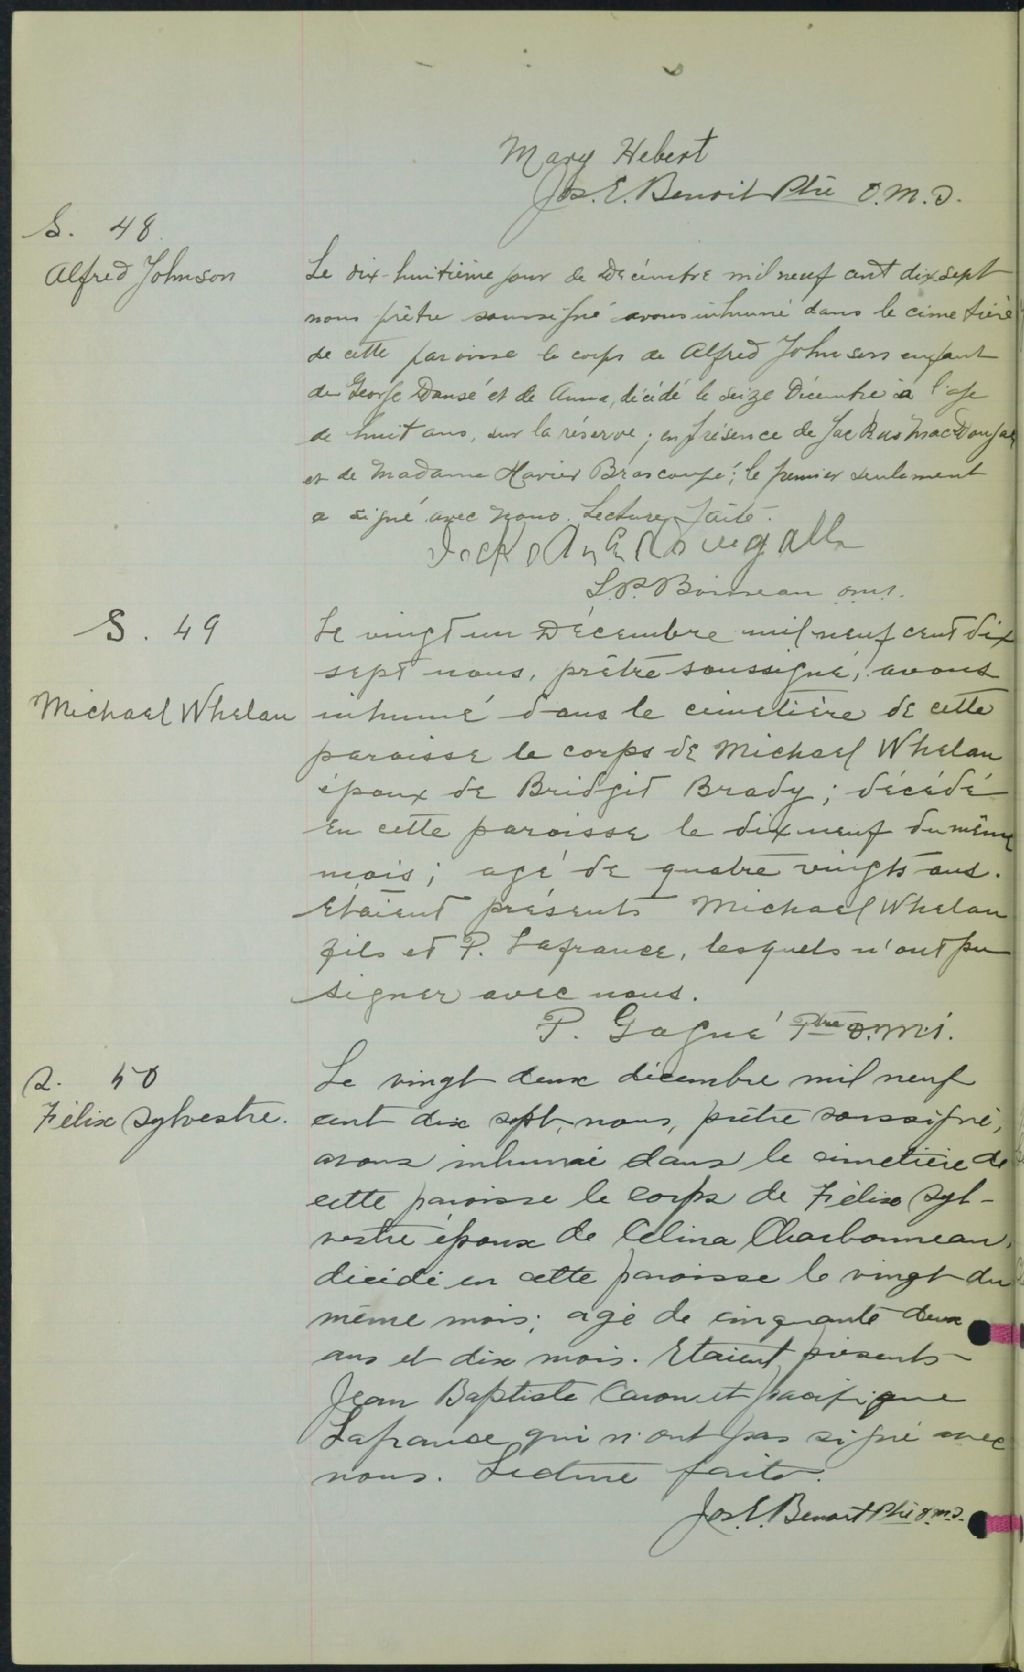 Mary Hebert
Jos. E. Benoit Ptre O.M.I.
S. 48
Alfred Johnson
Le dix-huitième jour de Décembre mil neuf cent dix sept
nous prêtre soussigné avons inhumé dans le cimetière
de cette paroisse le corps de Alfred Johnson enfant
de George Dansé et de Anna, décédé le seize Décembre à l'age
de huit ans, sur la réserve; en présence de Jackus MacDougall
et de Madame Xavier Brascoupé; le premier seulement
a signé avec nous. Lecture faite.
L.P. Boisseau omi.
S. 49
Michael Whelan
Le vingt un Décembre mil neuf cent dix
sept nous, prêtre soussigné, avons
inhumé dans le cimetière de cette
paroisse le corps de Michael Whelan
époux de Bridgid Brady; décédé
en cette paroisse le dix neuf du même
mois; agé de quatre vingts ans.
Etaient présents Michael Whelan
fils et P. Lafrance, lesquels n'ont pu
signer avec nous.
P. Gagné Ptre o.m.i.
S. 50
Félix Sylvestre.
Le vingt deux décembre mil neuf
cent dix sept, nous, prêtre soussigné,
avons inhumé dans le cimetière de
cette paroisse le corps de Félix Syl-
vestre époux de Celina Charbonneau,
décédé en cette paroisse le vingt du
même mois; agé de cinquante deux
ans et dix mois. Etaient présents
Jean Baptiste Caron et pacifique
Lafrance qui n'ont pas signé avec
nous. Lecture faite.
Jos. E. Benoit Ptre o.m.i.